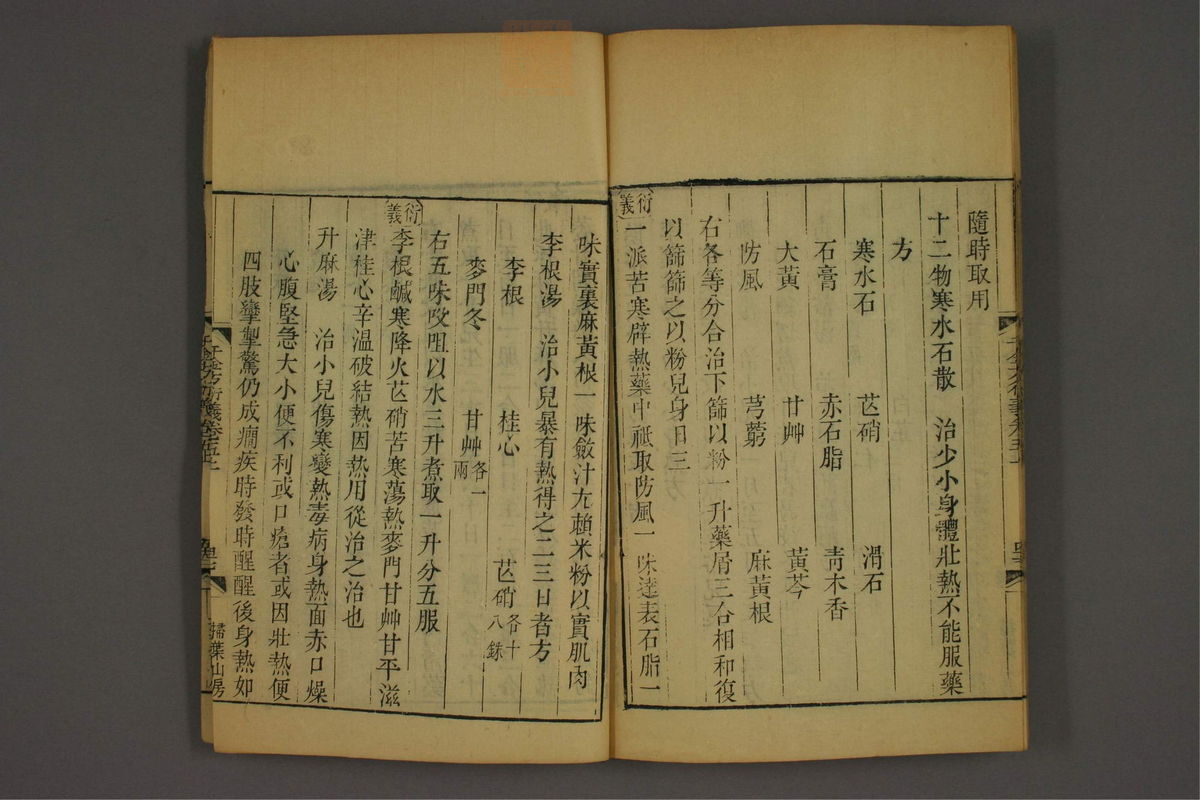 隨時取用
十二物寒水石散　治少小身體壯熱不能服藥
方
寒水石　芒硝　滑石
石膏　赤石脂　靑木香
大黃　甘艸　黃芩
防風　芎藭　麻黃根
右各等分合治下篩以粉一升藥屑三合相和復
以篩篩之以粉兒身日三
衍義
一派苦寒辟熱藥中祇取防風一味達表石脂一
味實裏麻黃根一味斂汁尤賴米粉以實肌肉
李根湯　治小兒暴有熱得之二三日者方
李根　桂心　芒硝各十八銖
麥門冬　甘艸各一兩
右五味㕮咀以水三升煮取一升分五服
衍義
李根鹹寒降火芒硝苦寒蕩熱麥門甘艸甘平滋
津桂心辛溫破結熱因熱用從治之治也
升麻湯　治小兒傷寒變熱毒病身熱面赤口燥
心腹堅急大小便不利或口瘡者或因壯熱便
四肢攣掣驚仍成癇疾時發時醒醒後身熱如
千金方衍義卷五
掃葉山房